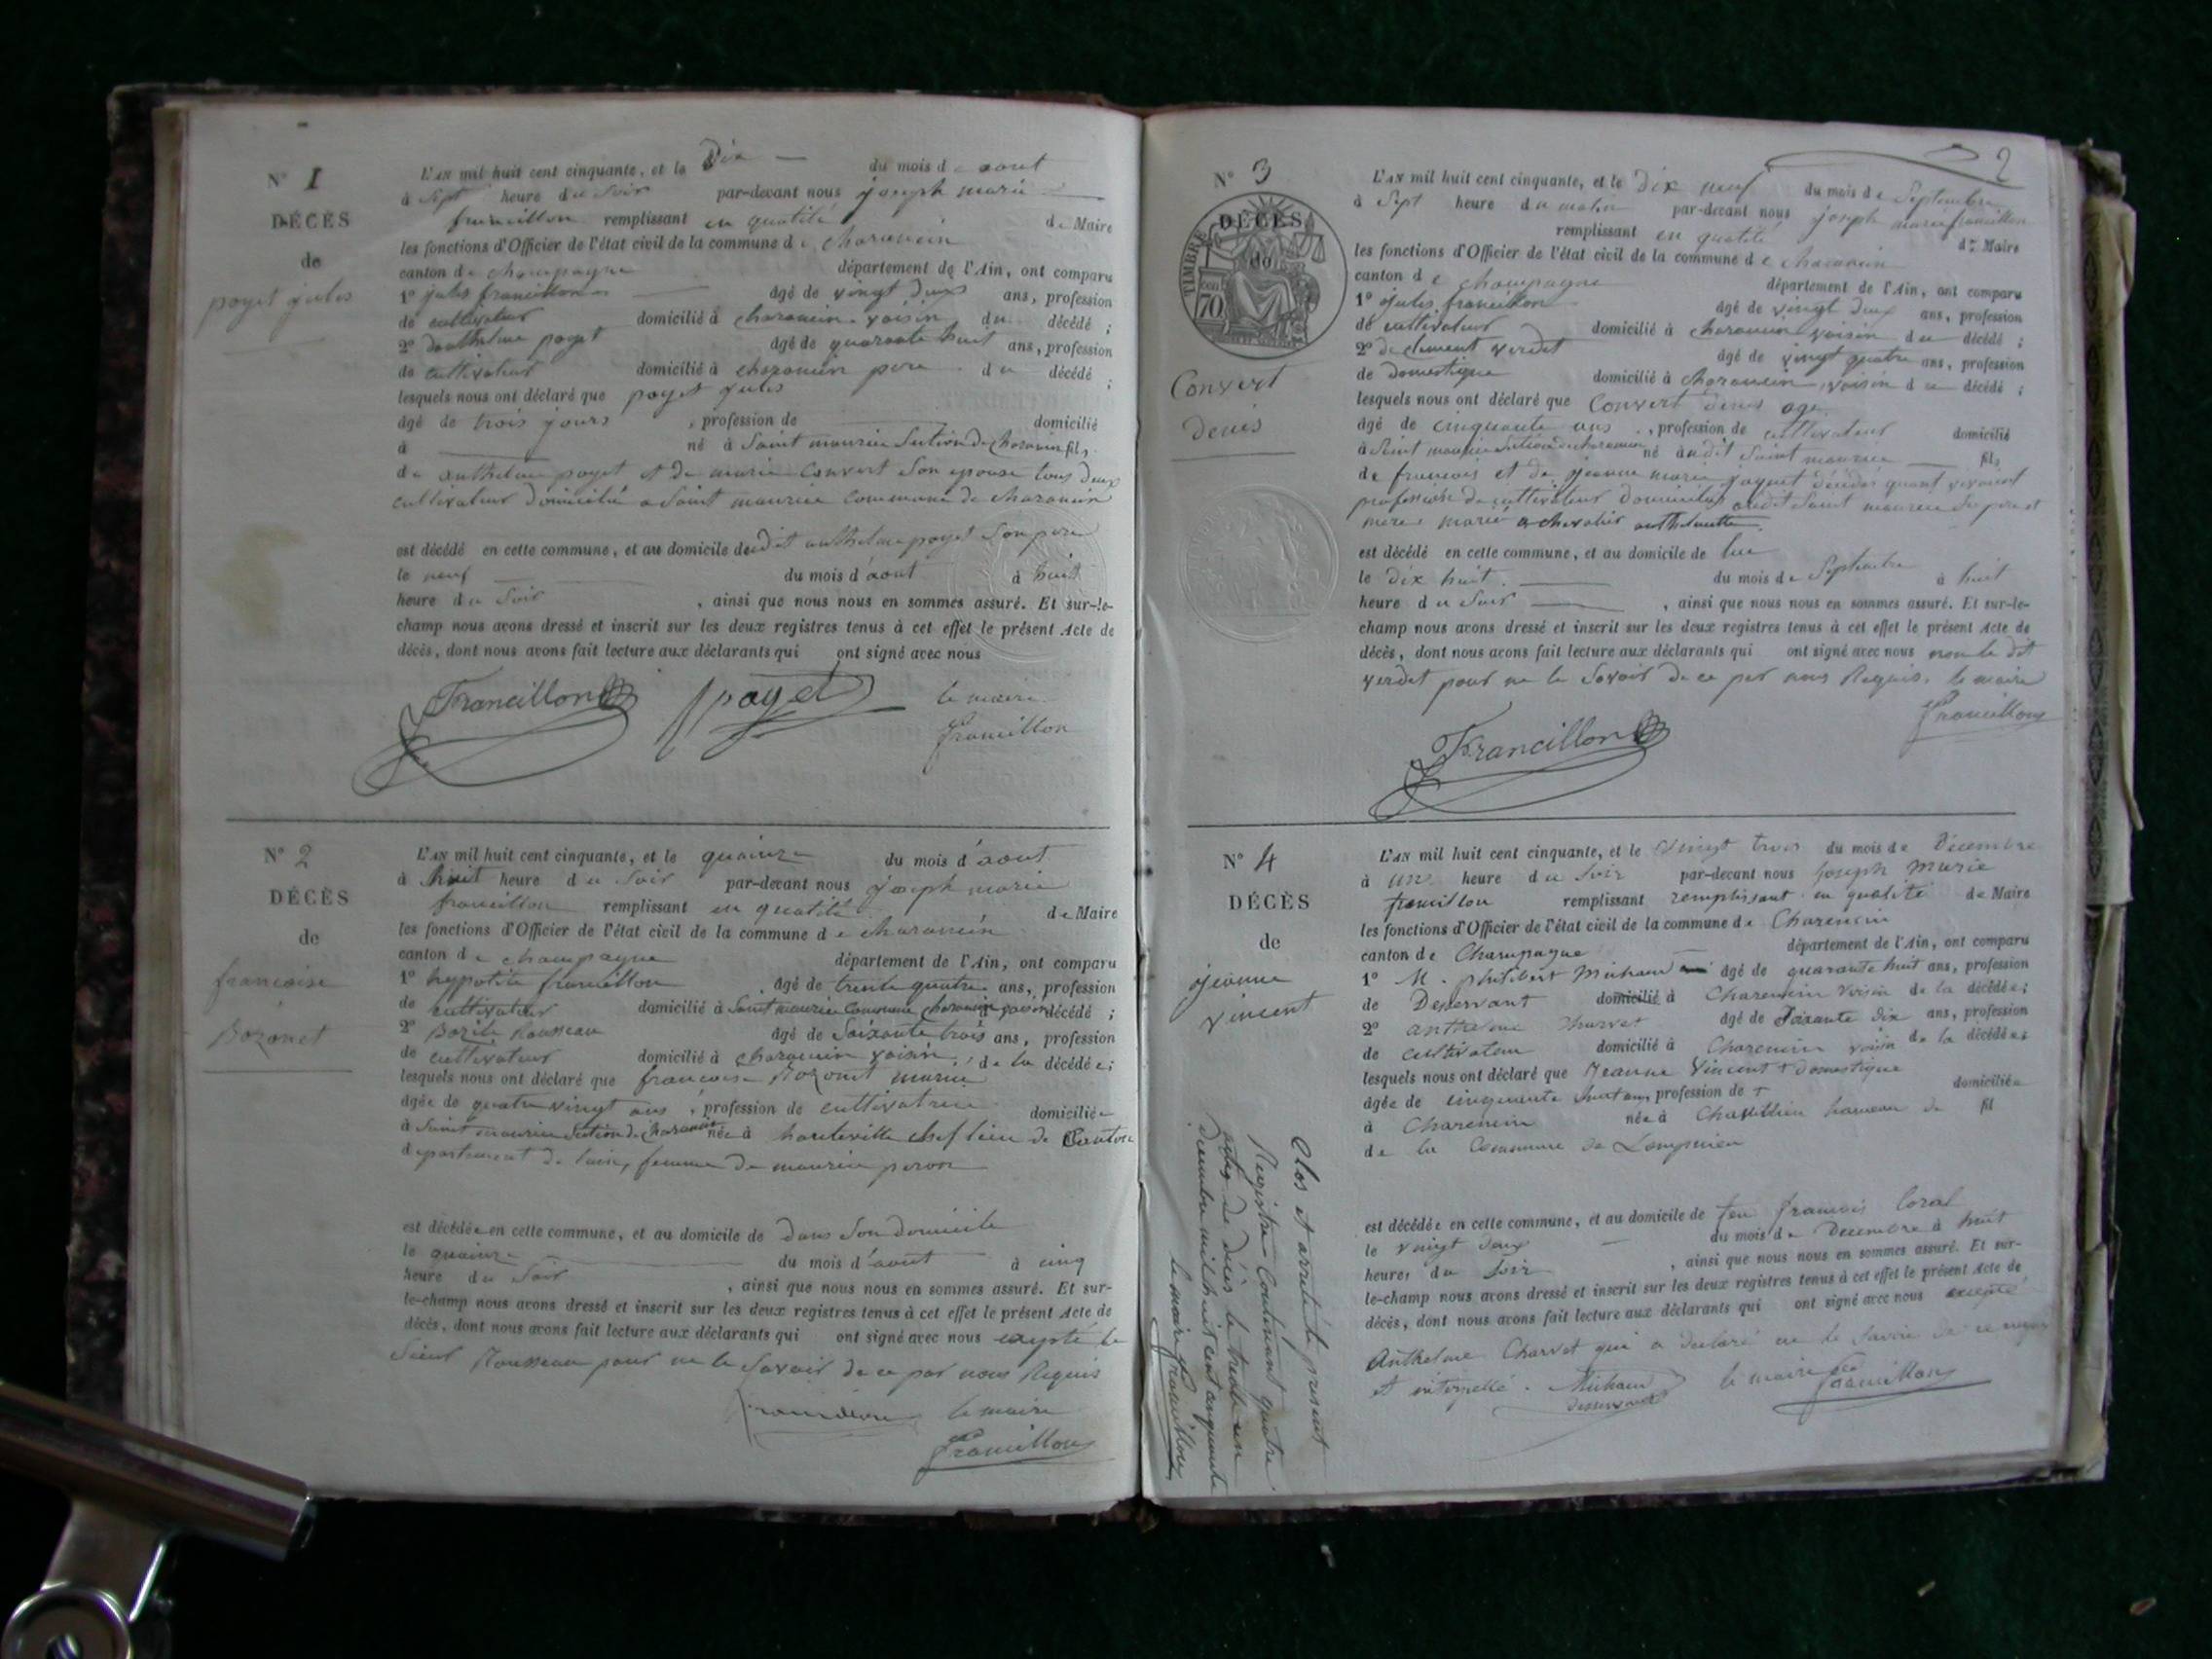 N° 1
DÉCÈS
de
poyet jules
L'AN mil huit cent cinquante, et le Dix du mois d'aout
à Sept heure du Soir par-devant nous joseph marie
francillon remplissant en qualité de Maire
les fonctions d'Officier de l'état civil de la commune de charancin
canton de champagne département de l'Ain, ont comparu
1° jules francillon âgé de vingt deux ans, profession
de cultivateur domicilié à charancin voisin du décédé ;
2° danthelme poyet âgé de quarante huit ans, profession
de cultivateur domicilié à charancin père du décédé ;
lesquels nous ont déclaré que poyet jules
âgé de trois jours , profession de domicilié
à né à Saint maurice Section de Charancin fils
de anthelme poyet et de marie Convert Son epouse tous deux
cultivateur domicilié a Saint maurice Commune de charancin
est décédé en cette commune, et au domicile dudit anthelme poyet Son père
le neuf du mois d'aout à huit
heure du Soir , ainsi que nous nous en sommes assuré. Et sur-le-
champ nous avons dressé et inscrit sur les deux registres tenus à cet effet le présent Acte de
décès, dont nous avons fait lecture aux déclarants qui ont signé avec nous
Francillon poyet le maire
francillon
N° 2
DÉCÈS
de
francoise
Bozonet
L'AN mil huit cent cinquante, et le quainze du mois d'aout
à huit heure du Soir par-devant nous joseph marie
francillon remplissant en qualité de Maire
les fonctions d'Officier de l'état civil de la commune de charancin
canton de champagne département de l'Ain, ont comparu
1° hypolite francillon âgé de trente quatre ans, profession
de cultivateur domicilié à Saint maurice Commune charancin voisin décédé ;
2° Bazile Rousseau âgé de Soixante trois ans, profession
de cultivateur domicilié à charancin voisin de la décédée ;
lesquels nous ont déclaré que francoise Bozonet marie
âgée de quatre vingt ans , profession de cultivatrice domiciliée
à Saint maurice Section de Charancin née à hauteville chef lieu de Canton
departement de lain, femme de maurice peron
est décédée en cette commune, et au domicile de dans Son domicile
le quainze du mois d'aout à cinq
heure du Soir , ainsi que nous nous en sommes assuré. Et sur-
le-champ nous avons dressé et inscrit sur les deux registres tenus à cet effet le présent Acte de
décès, dont nous avons fait lecture aux déclarants qui ont signé avec nous exepté le
Sieur Rousseau pour ne le Savoir de ce par nous Requis
francillon le maire
Francillon
2
N° 3
DÉCÈS
de
TIMBRE
70
Convert
denis
L'AN mil huit cent cinquante, et le Dix neuf du mois de Septembre
à Sept heure du matin par-devant nous joseph marie francillon
remplissant en qualité de Maire
les fonctions d'Officier de l'état civil de la commune de charancin
canton de champagne département de l'Ain, ont comparu
1° jules francillon âgé de vingt deux ans, profession
de cultivateur domicilié à charancin voisin du décédé ;
2° de clement verdet âgé de vingt quatre ans, profession
de domestique domicilié à charancin, voisin du décédé ;
lesquels nous ont déclaré que Convert denis age
âgé de cinquante ans , profession de cultivateur domicilié
à Saint maurice Section de charancin né audit Saint maurice fils
de francois et de jeanne marie jaquet décédés quant vivaient
profession de cultivateur domicilié audit Saint maurice Ses pere et
mere marié a chevalier anthelmette
est décédé en cette commune, et au domicile de lui
le dix huit du mois de Septembre à huit
heure du Soir , ainsi que nous nous en sommes assuré. Et sur-le-
champ nous avons dressé et inscrit sur les deux registres tenus à cet effet le présent Acte de
décès, dont nous avons fait lecture aux déclarants qui ont signé avec nous non le dit
verdet pour ne le Savoir de ce par nous Requis. le maire
Francillon
Francillon
N° 4
DÉCÈS
de
jeanne
vincent
L'AN mil huit cent cinquante, et le vingt trois du mois de Décembre
à un heure du Soir par-devant nous Joseph Marie
francillon remplissant remplissant en qualité de Maire
les fonctions d'Officier de l'état civil de la commune de Charencin
canton de Champagne département de l'Ain, ont comparu
1° M. Philibert Michaud âgé de quarante huit ans, profession
de Desservant domicilié à Charencin voisin de la décédée ;
2° anthelme Charvet âgé de Soixante dix ans, profession
de cultivateur domicilié à Charencin voisin de la décédée ;
lesquels nous ont déclaré que Jeanne Vincent + domestique
âgée de cinquante huit ans, profession de + domiciliée
à Charencin née à hameau de fil
de la Commune de Lompnieu
est décédée en cette commune, et au domicile de feu francois Coral
le vingt deux du mois de Decembre à huit
heures du Soir , ainsi que nous nous en sommes assuré. Et sur-
le-champ nous avons dressé et inscrit sur les deux registres tenus à cet effet le présent Acte de
décès, dont nous avons fait lecture aux déclarants qui ont signé avec nous excepté
Anthelme Charvet qui a déclaré ne le Savoir de ce requis
et interpellé. Michaud le maire Francillon
desservant
Clos et arreté le présent
Registre Contenant quatre
actes de décès le trente un
decembre mil huit cent cinquante
le maire Francillon